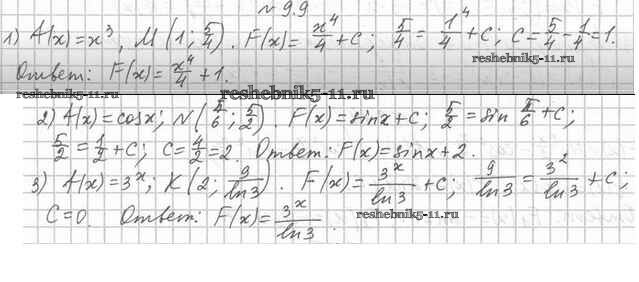 № 9.9
1) A(x) = x³, M (1; 5/4). F(x) = x⁴/4 + C; 5/4 = 1⁴/4 + C; C = 5/4 - 1/4 = 1.
reshebnik5-11.ru
Ответ: F(x) = x⁴/4 + 1.
reshebnik5-11.ru reshebnik5-11.ru
2) A(x) = cosx; N(π/6; 5/2) F(x) = sinx + C; 5/2 = sin π/6 + C;
5/2 = 1/2 + C; C = 4/2 = 2. Ответ: F(x) = sinx + 2.
3) A(x) = 3ˣ; K (2; 9/ln3). F(x) = 3ˣ/ln3 + C; 9/ln3 = 3²/ln3 + C;
C = 0. Ответ: F(x) = 3ˣ/ln3.
reshebnik5-11.ru